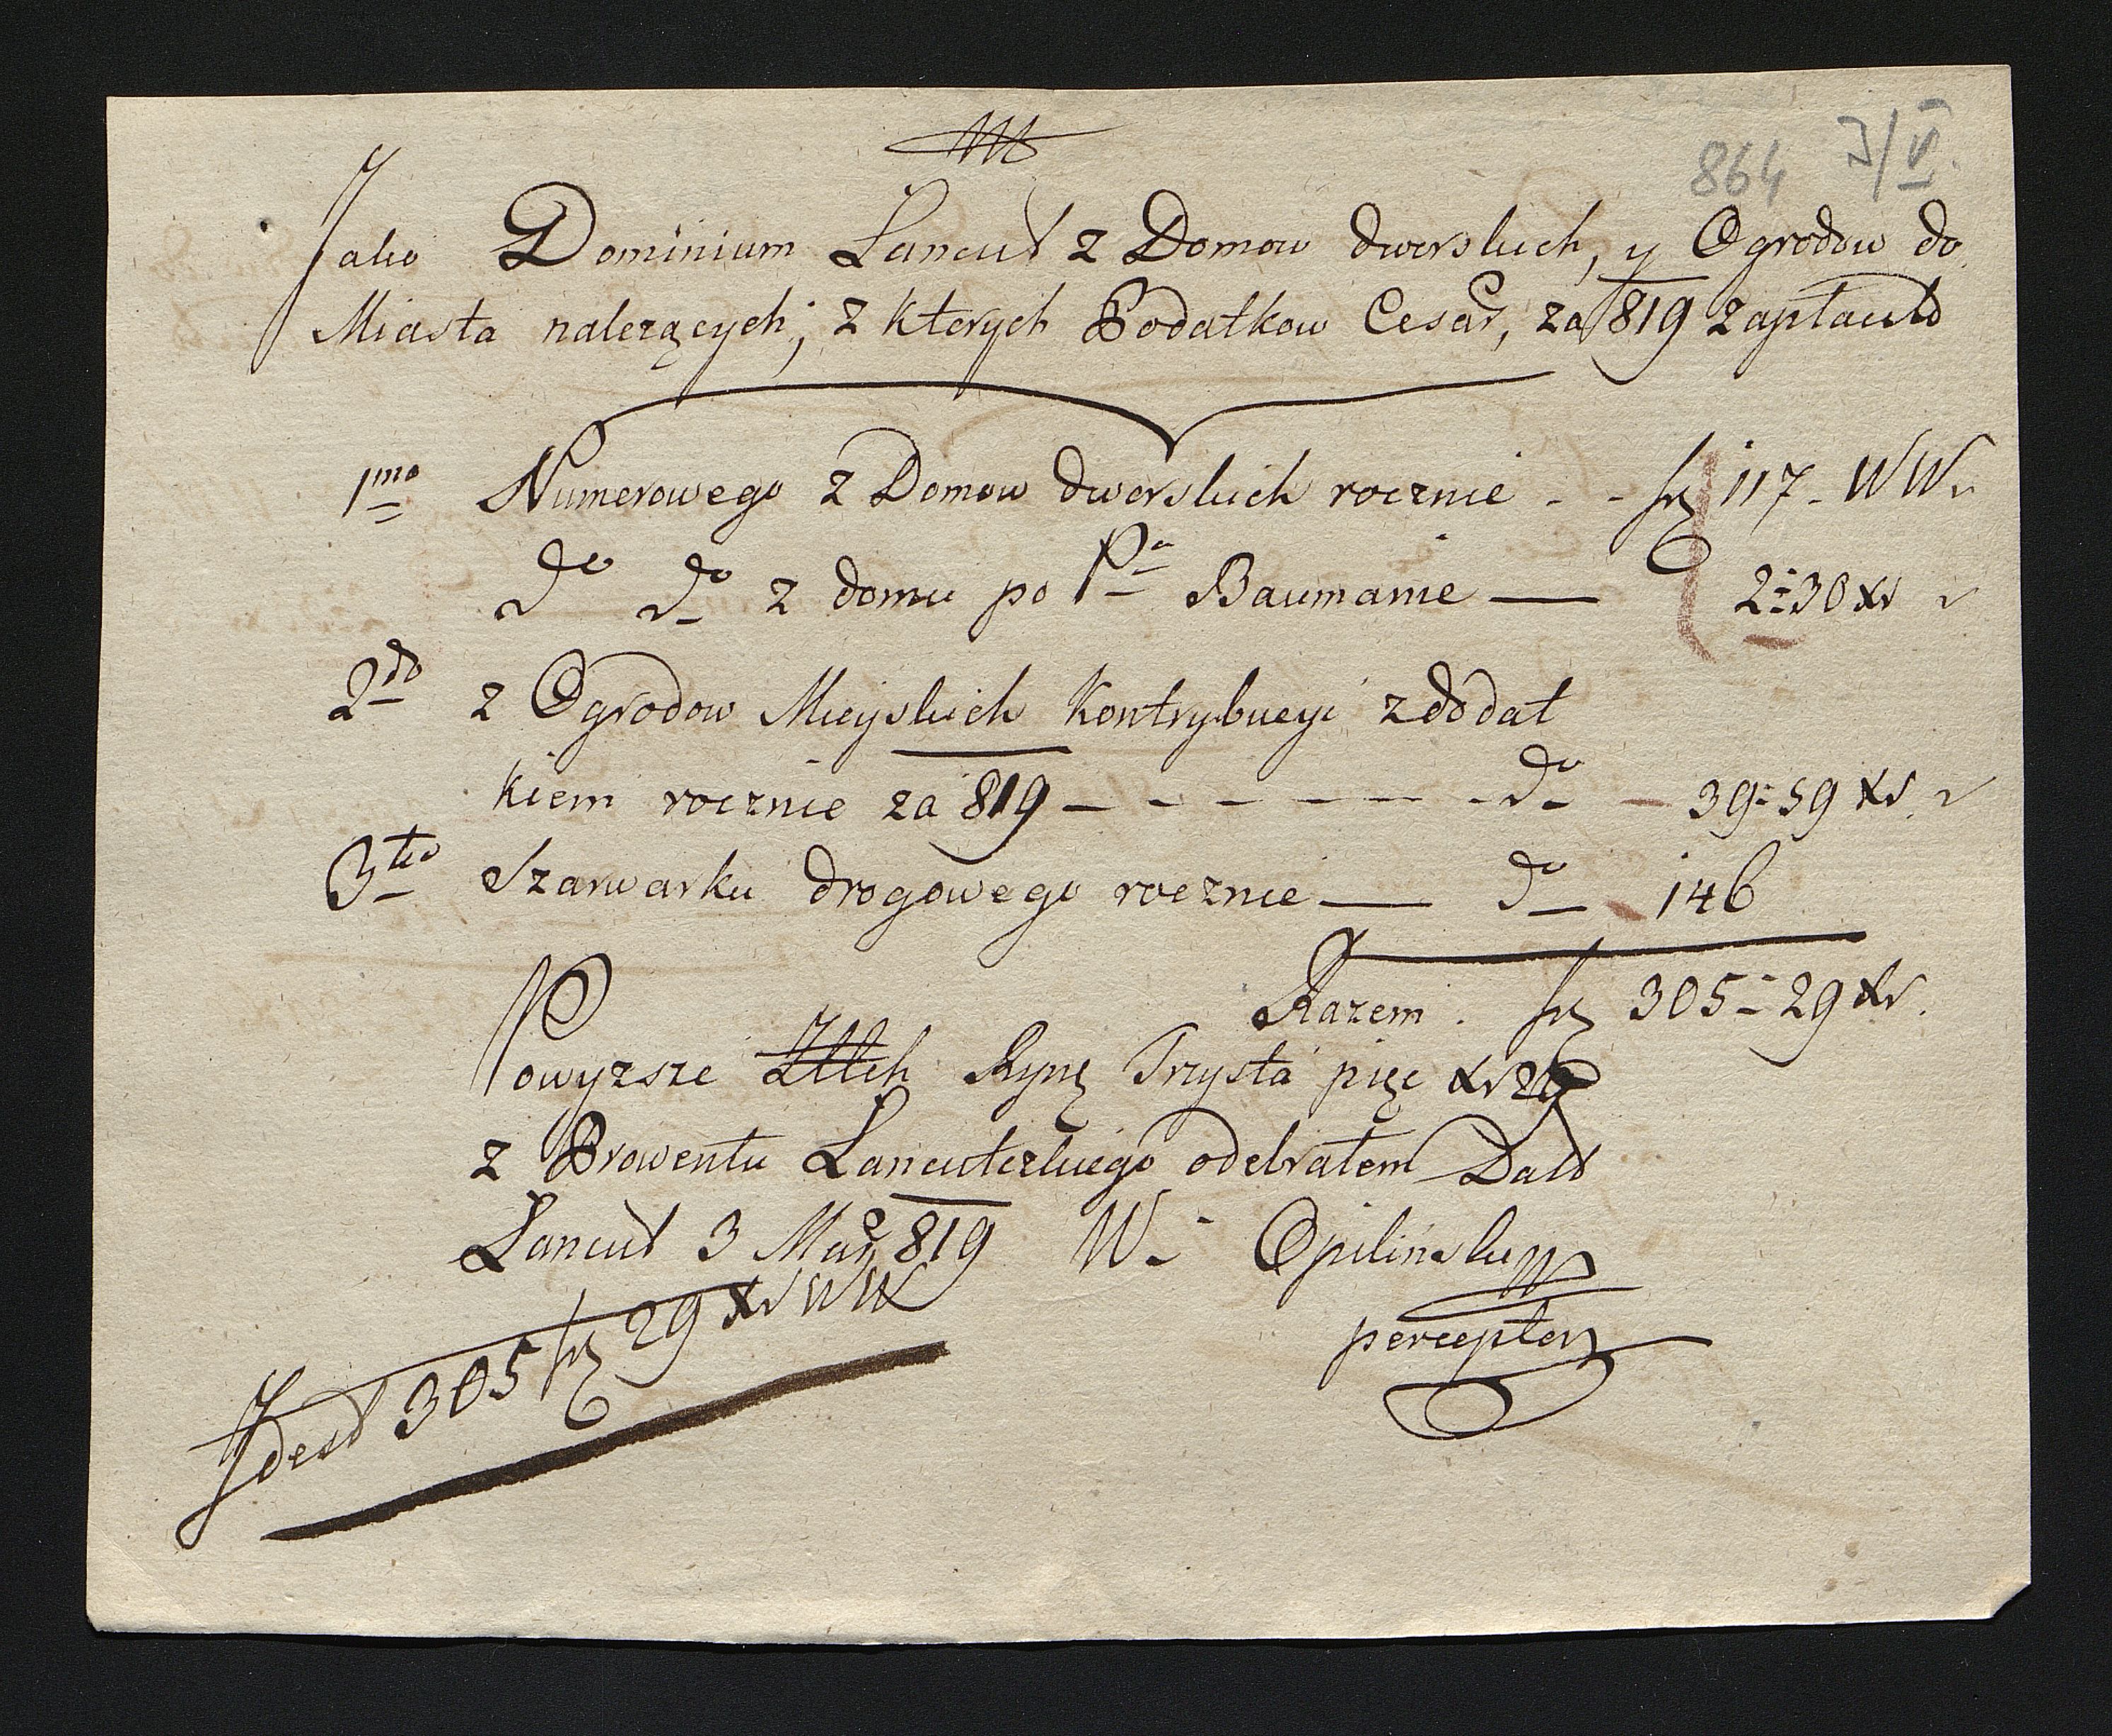 864 I/VI.
Jako Dominium Lancut z Domow dworskich, y Ogrodow do
Miasta nalezących; z ktorych Podatkow Cesar, za 819 zapłacił
1mo Numerowego z Domow dworskich rocznie - - fr 117 - WW
do do z domu po Pa Baumanie — 2:30 xr
2do z Ogrodow Mieyskich Kontrybucyi z dodat
kiem rocznie za 819 - - - - - - do - 39:59 xr.
3tio Szarwarku drogowego rocznie — do 146
Razem. fr 305-29 xr.
Powyzsze Złłch Rynę Trzysta pięc xr 29
z Prowentu Lancutczkiego odebrałem Datt
Lancut 3 Mar 819 W. Opilinski
perceptor
Idest 305 fr 29 xr WW